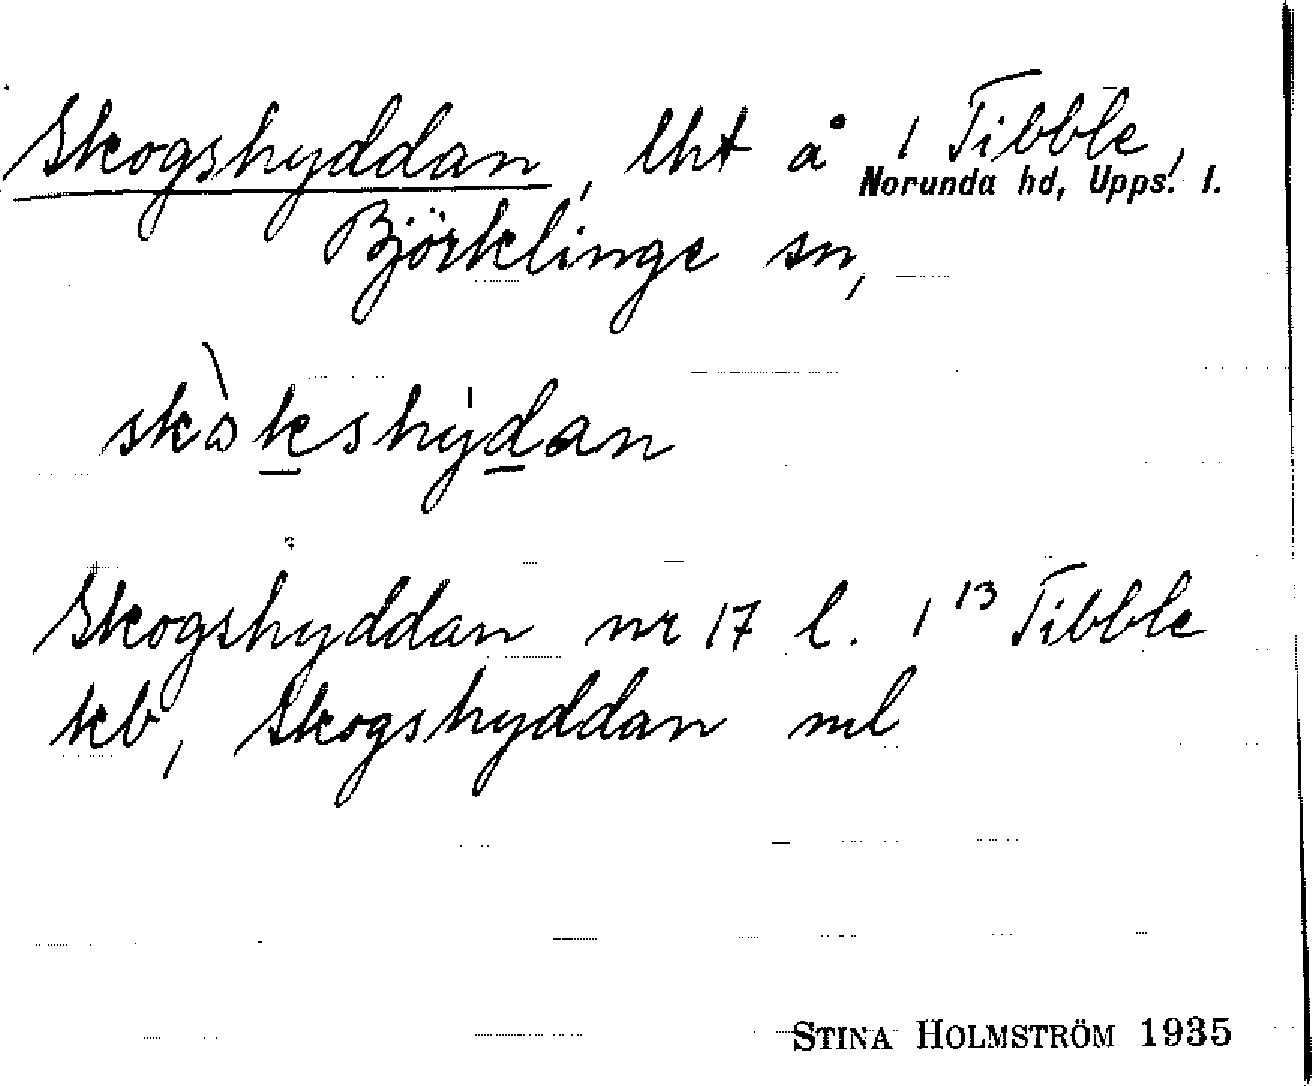 Skogshyddan, lht å 1 Tibble,
Norunda hd, Upps. l.
Björklinge sn,
skὼkshy̍dan
Skogshyddan nr 17 l. 1¹³ Tibble
kb, Skogshyddan ml
STINA HOLMSTRÖM 1935